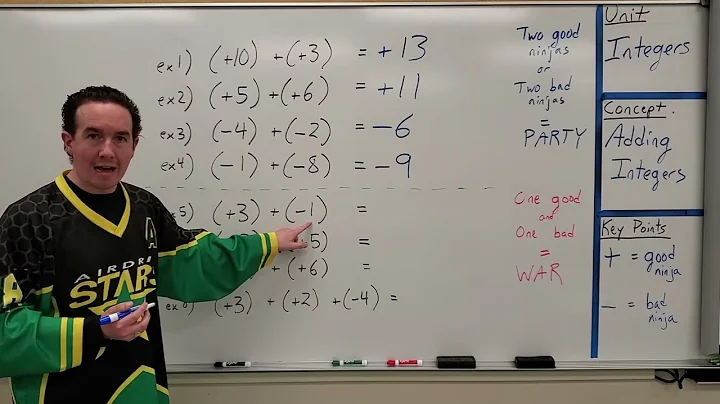 ex1) (+10) + (+3) = +13
ex2) (+5) + (+6) = +11
ex3) (-4) + (-2) = -6
ex4) (-1) + (-8) = -9
5) (+3) + (-1) =
5) =
+ (+6) =
(+3) + (+2) + (-4) =
Two good
ninjas
or
Two bad
ninjas
=
PARTY
One good
and
One bad
=
WAR
Unit
Integers
Concept.
Adding
Integers
Key Points
+ = good
ninja
- = bad
ninja
A
AIRDRI
STARS